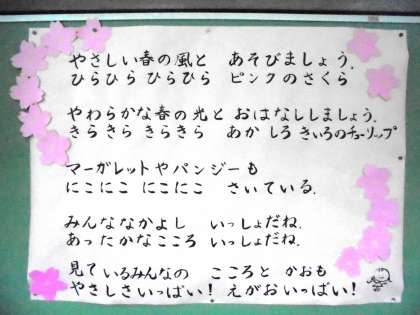 やさしい春の風と　あそびましょう.
ひらひら ひらひら　ピンクのさくら
やわらかな春の光と おはなししましょう.
きらきら きらきら　あか しろ きいろのチューリップ
マーガレットやパンジーも
にこにこ にこにこ　さいている.
みんななかよし　いっしょだね.
あったかなこころ いっしょだね.
見ているみんなの　こころと かおも
やさしさいっぱい! えがおいっぱい!